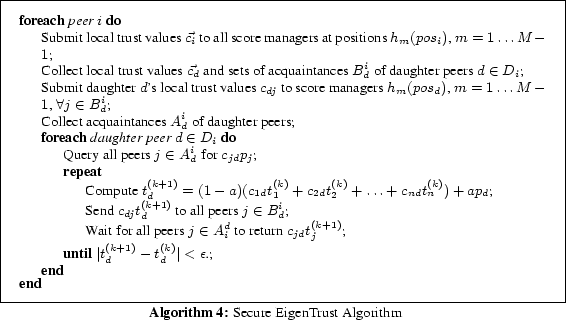 foreach peer i do
Submit local trust values $\vec{c}_i$ to all score managers at positions $h_m(pos_i)$, $m = 1 \ldots M -$
$1$;
Collect local trust values $\vec{c}_d$ and sets of acquaintances $B_d^i$ of daughter peers $d \in D_i$;
Submit daughter $d$'s local trust values $c_{dj}$ to score managers $h_m(pos_d)$, $m = 1 \ldots M -$
$1, \forall j \in B_d^i$;
Collect acquaintances $A_d^i$ of daughter peers;
foreach daughter peer $d \in D_i$ do
Query all peers $j \in A_d^i$ for $c_{jd}p_j$;
repeat
Compute $t_d^{(k+1)} = (1 - a)(c_{1d}t_1^{(k)} + c_{2d}t_2^{(k)} + \ldots + c_{nd}t_n^{(k)}) + ap_d$;
Send $c_{dj}t_d^{(k+1)}$ to all peers $j \in B_d^i$;
Wait for all peers $j \in A_i^d$ to return $c_{jd}t_j^{(k+1)}$;
until $|t_d^{(k+1)} - t_d^{(k)}| < \epsilon$.;
end
end
Algorithm 4: Secure EigenTrust Algorithm